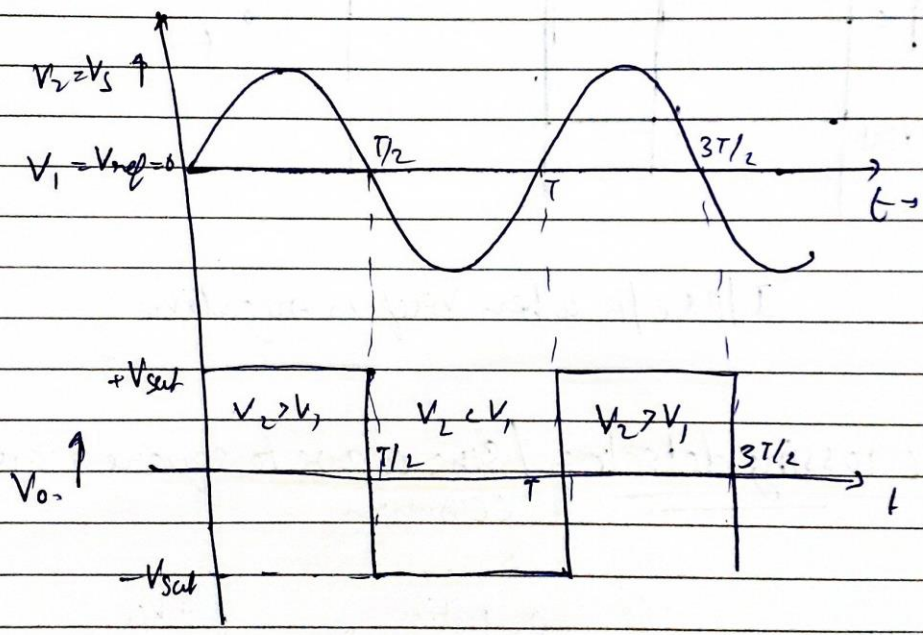 V₂=Vs ↑
V₁ = Vref=0
T/2
T
3T/2
t→
+Vsat
V₂>V₁
V₂<V₁
V₂>V₁
T/2
T
3T/2
V₀
t
-Vsat